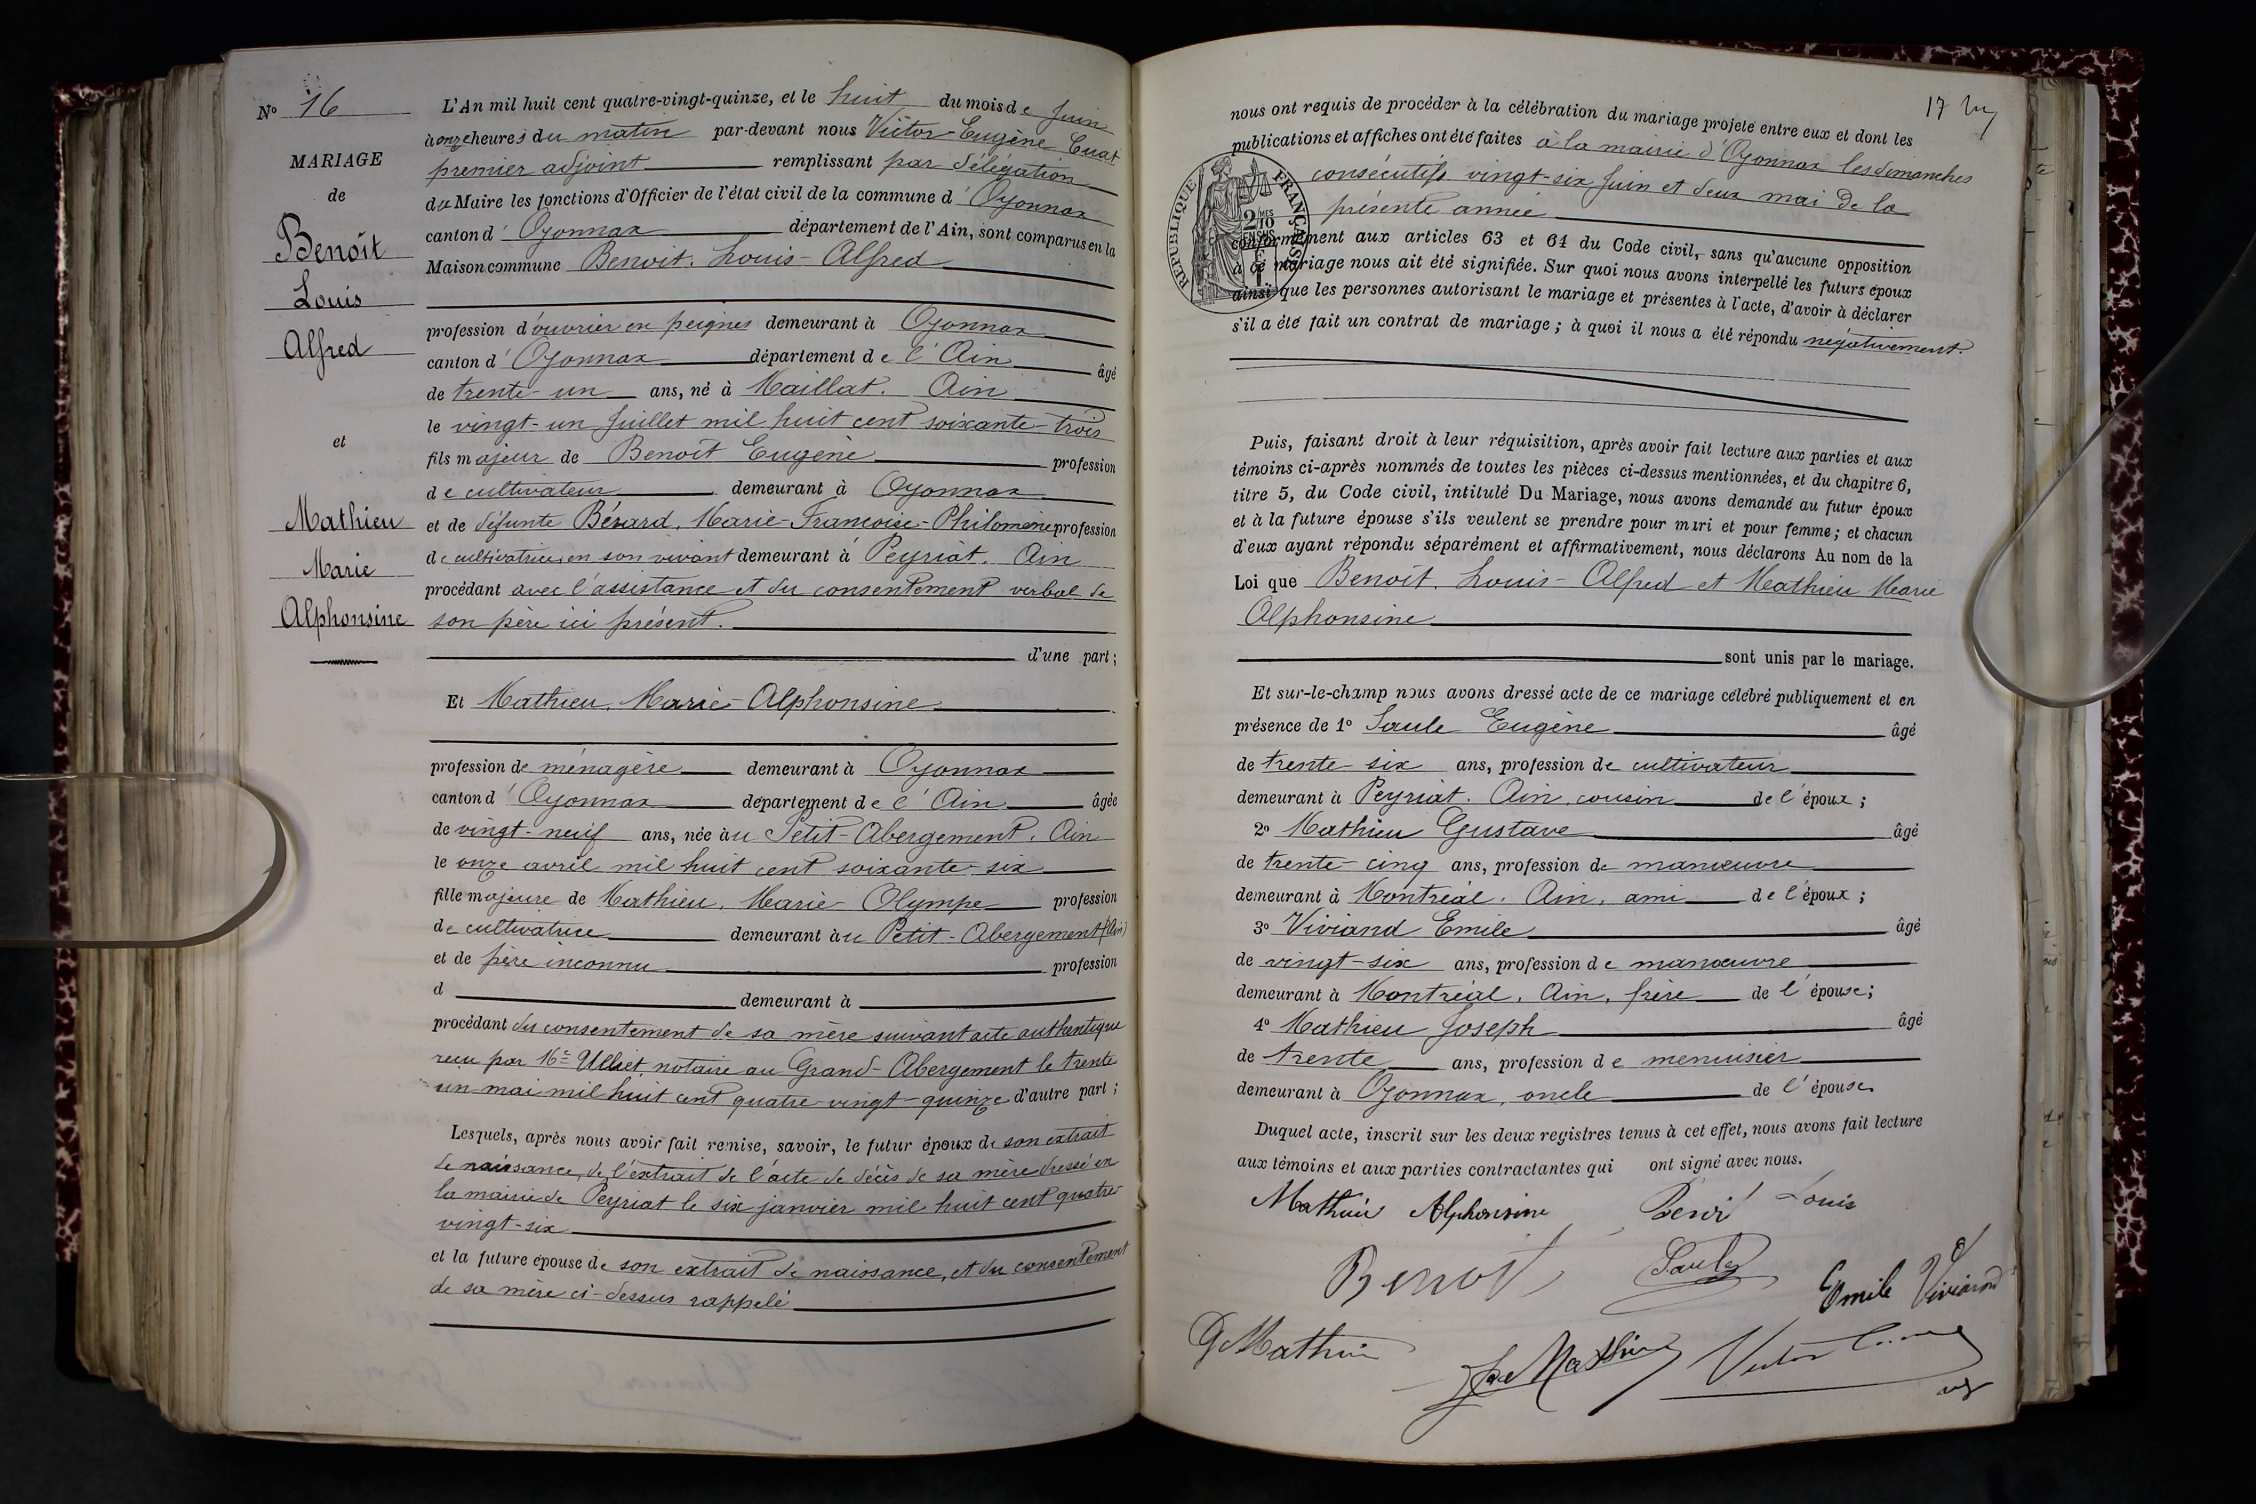 No 16
MARIAGE
de
Benoît
Louis
Alfred
et
Mathieu
Marie
Alphonsine
L'An mil huit cent quatre-vingt-quinze, et le huit du mois de Juin
à onze heures du matin par-devant nous Victor-Eugène Cuat
premier adjoint remplissant par délégation
du Maire les fonctions d'Officier de l'état civil de la commune d'Oyonnax
canton d'Oyonnax département de l'Ain, sont comparus en la
Maison commune Benoit. Louis-Alfred
profession d'ouvrier en peignes demeurant à Oyonnax
canton d'Oyonnax département de l'Ain âgé
de trente-un ans, né à Maillat. Ain
le vingt-un Juillet mil huit cent soixante-trois
fils majeur de Benoît Eugène profession
de cultivateur demeurant à Oyonnax
et de défunte Bésard, Marie-Francoise-Philomène profession
de cultivatrice en son vivant demeurant à Peyriat. Ain
procédant avec l'assistance et du consentement verbal de
son père ici présent.
d'une part;
Et Mathieu, Marie-Alphonsine
profession de ménagère demeurant à Oyonnax
canton d'Oyonnax département de l'Ain âgée
de vingt-neuf ans, née au Petit-Abergement. Ain
le onze avril mil huit cent soixante-six
fille majeure de Mathieu, Marie-Olympe profession
de cultivatrice demeurant au Petit-Abergement (Ain)
et de père inconnu profession
d demeurant à
procédant du consentement de sa mère suivant acte authentique
recu par Me notaire au Grand-Abergement le trente
un mai mil huit cent quatre-vingt-quinze d'autre part;
Lesquels, après nous avoir fait remise, savoir, le futur époux de son extrait
de naissance, de l'extrait de l'acte de décès de sa mère dressé en
la mairie de Peyriat le six janvier mil huit cent quatre-
vingt-six
et la future épouse de son extrait de naissance, et du consentement
de sa mère ci-dessus rappelé
17
nous ont requis de procéder à la célébration du mariage projeté entre eux et dont les
publications et affiches ont été faites à la mairie d'Oyonnax les dimanches
consécutifs vingt-six Juin et deux mai de la
présente année
RÉPUBLIQUE FRANÇAISE
2/10 EN SUS
conformément aux articles 63 et 64 du Code civil, sans qu'aucune opposition
à ce mariage nous ait été signifiée. Sur quoi nous avons interpellé les futurs époux
ainsi que les personnes autorisant le mariage et présentes à l'acte, d'avoir à déclarer
s'il a été fait un contrat de mariage; à quoi il nous a été répondu négativement.
Puis, faisant droit à leur réquisition, après avoir fait lecture aux parties et aux
témoins ci-après nommés de toutes les pièces ci-dessus mentionnées, et du chapitre 6,
titre 5, du Code civil, intitulé Du Mariage, nous avons demandé au futur époux
et à la future épouse s'ils veulent se prendre pour mari et pour femme; et chacun
d'eux ayant répondu séparément et affirmativement, nous déclarons Au nom de la
Loi que Benoit. Louis-Alfred et Mathieu Marie
Alphonsine
sont unis par le mariage.
Et sur-le-champ nous avons dressé acte de ce mariage célébré publiquement et en
présence de 1o Saule Eugène âgé
de trente-six ans, profession de cultivateur
demeurant à Peyriat. Ain. cousin de l'époux;
2o Mathieu Gustave âgé
de trente-cinq ans, profession de manœuvre
demeurant à Montréal. Ain, ami de l'époux;
3o Viviand Emile âgé
de vingt-six ans, profession de manœuvre
demeurant à Montréal, Ain, frère de l'épouse;
4o Mathieu Joseph âgé
de trente ans, profession de menuisier
demeurant à Oyonnax, oncle de l'épouse
Duquel acte, inscrit sur les deux registres tenus à cet effet, nous avons fait lecture
aux témoins et aux parties contractantes qui ont signé avec nous.
Mathieu Alphonsine Louis
Benoit Saule Emile Viviand
G Mathieu Mathieu Victor